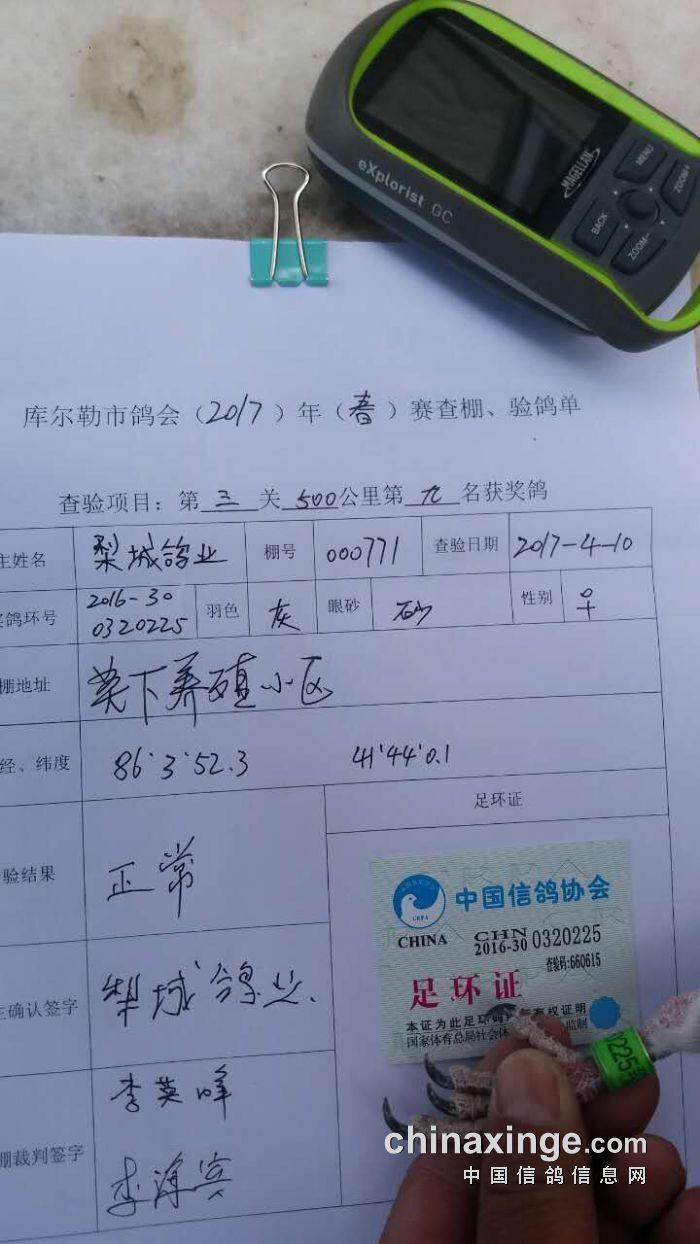 eXplorist GC
MAGELLAN
MENU
ZOOM+
BACK
ZOOM-
库尔勒市鸽会（2017）年（春）赛查棚、验鸽单
查验项目：第 三 关 500公里第 九 名获奖鸽
主姓名 梨城鸽业 棚号 000771 查验日期 2017-4-10
奖鸽环号 2016-30 0320225 羽色 灰 眼砂 砂 性别 ♀
棚地址 英下养殖小区
经、纬度 86°3'52.3 41°44'0.1
足环证
验结果 正常
中国信鸽协会
CRPA
CHINA
CHN
2016-30 0320225
查验码:660615
足环证
本证为此足环
有权证明
国家体育总局社会体
监制
主确认签字 梨城鸽业.
0225
棚裁判签字 李英峰
李海宾
chinaxinge.com
中国信鸽信息网